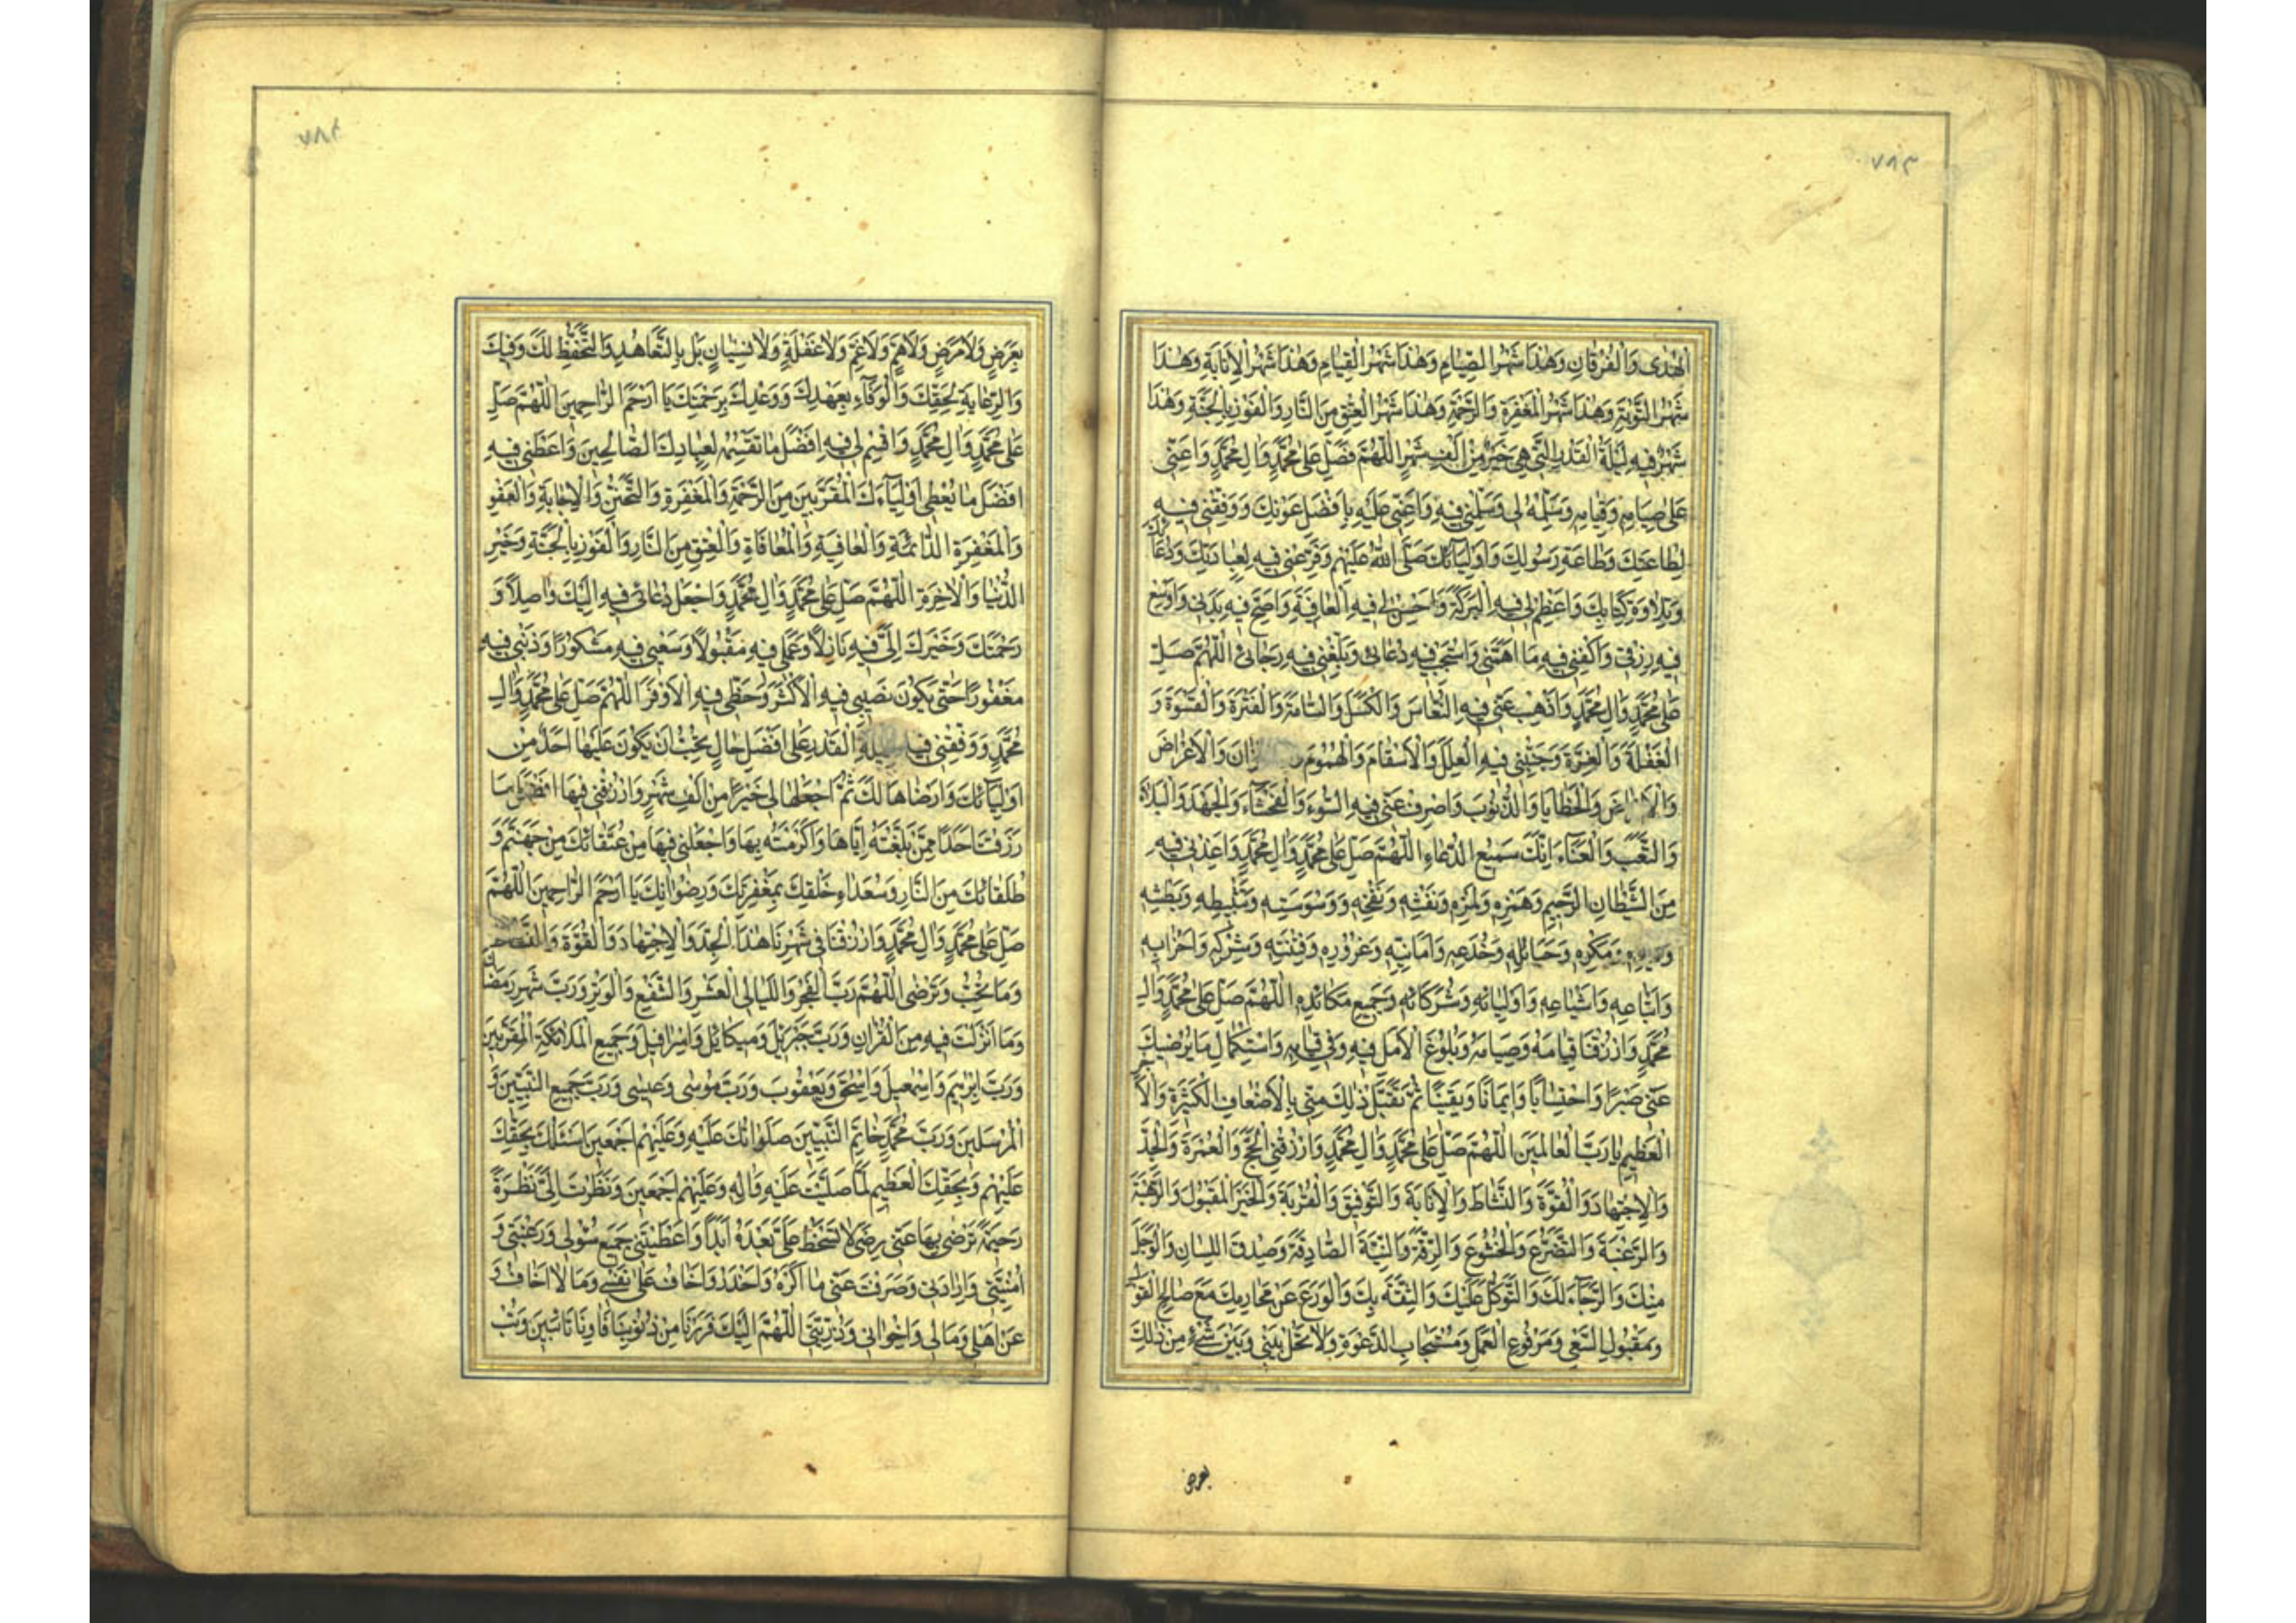 ٧٨٣
الْهُدٰى وَالْفُرْقانِ وَهٰذا شَهْرُ الصِّيامِ وَهٰذا شَهْرُ الْقِيامِ وَهٰذا شَهْرُ الْاِنابَةِ وَهٰذا
شَهْرُ التَّوْبَةِ وَهٰذا شَهْرُ الْمَغْفِرَةِ وَالرَّحْمَةِ وَهٰذا شَهْرُ الْعِتْقِ مِنَ النَّارِ وَالْفَوْزِ بِالْجَنَّةِ وَهٰذا
شَهْرٌ فيهِ لَيْلَةُ الْقَدْرِ الَّتي هِيَ خَيْرٌ مِنْ اَلْفِ شَهْرٍ اَللّٰهُمَّ فَصَلِّ عَلٰى مُحَمَّدٍ وَالِ مُحَمَّدٍ وَاَعِنّي
عَلٰى صِيامِهِ وَقِيامِهِ وَسَلِّمْهُ لي وَسَلِّمْني فيهِ وَاَعِنّي عَلَيْهِ بِاَفْضَلِ عَوْنِكَ وَوَفِّقْني فيهِ
لِطاعَتِكَ وَطاعَةِ رَسُولِكَ وَاَوْلِيآئِكَ صَلَّى اللهُ عَلَيْهِمْ وَفَرِّغْني فيهِ لِعِبادَتِكَ وَدُعآئِكَ
وَتِلاوَةِ كِتابِكَ وَاَعْظِمْ لي فيهِ الْبَرَكَةَ وَاَحْسِنْ لي فيهِ الْعافِيَةَ وَاَصِحَّ فيهِ بَدَني وَاَوْسِعْ
فيهِ رِزْقي وَاكْفِني فيهِ ما اَهَمَّني وَاسْتَجِبْ فيهِ دُعائي وَبَلِّغْني فيهِ رَجائي اَللّٰهُمَّ صَلِّ
عَلٰى مُحَمَّدٍ وَالِ مُحَمَّدٍ وَاَذْهِبْ عَنّي فيهِ النُّعاسَ وَالْكَسَلَ وَالسَّامَةَ وَالْفَتْرَةَ وَالْقَسْوَةَ وَ
الْغَفْلَةَ وَالْغِرَّةَ وَجَنِّبْني فيهِ الْعِلَلَ وَالْاَسْقامَ وَالْهُمُومَ وَالْاَعْراضَ
وَالْخَطايا وَالذُّنُوبَ وَاصْرِفْ عَنّي فيهِ السُّوءَ وَالْفَحْشآءَ وَالْجَهْدَ وَالْبَلآءَ
وَالتَّعَبَ وَالْعَنآءَ اِنَّكَ سَميعُ الدُّعاءِ اَللّٰهُمَّ صَلِّ عَلٰى مُحَمَّدٍ وَالِ مُحَمَّدٍ وَاَعِذْني فيهِ
مِنَ الشَّيْطانِ الرَّجيمِ وَهَمْزِهِ وَلَمْزِهِ وَنَفْثِهِ وَنَفْخِهِ وَوَسْوَسَتِهِ وَتَثْبيطِهِ وَبَطْشِهِ
وَمَكْرِهِ وَحَبائِلِهِ وَخُدَعِهِ وَاَمانِيِّهِ وَغُرُورِهِ وَفِتْنَتِهِ وَشَرَكِهِ وَاَحْزابِهِ
وَاَتْباعِهِ وَاَشْياعِهِ وَاَوْلِيائِهِ وَشُرَكائِهِ وَجَميعِ مَكائِدِهِ اَللّٰهُمَّ صَلِّ عَلٰى مُحَمَّدٍ وَالِ
مُحَمَّدٍ وَارْزُقْنا قِيامَهُ وَصِيامَهُ وَبُلُوغَ الْاَمَلِ فيهِ وَفي قِيامِهِ وَاسْتِكْمالَ ما يُرْضيكَ
عَنّي صَبْرًا وَاحْتِسابًا وَايمانًا وَيَقينًا ثُمَّ تَقَبَّلْ ذٰلِكَ مِنّي بِالْاَضْعافِ الْكَثيرَةِ وَالْاَجْرِ
الْعَظيمِ يا رَبَّ الْعالَمينَ اَللّٰهُمَّ صَلِّ عَلٰى مُحَمَّدٍ وَالِ مُحَمَّدٍ وَارْزُقْنِي الْحَجَّ وَالْعُمْرَةَ وَالْجِدَّ
وَالْاِجْتِهادَ وَالْقُوَّةَ وَالنَّشاطَ وَالْاِنابَةَ وَالتَّوْفيقَ وَالْقُرْبَةَ وَالْخَيْرَ الْمَقْبُولَ وَالرَّهْبَةَ
وَالرَّغْبَةَ وَالتَّضَرُّعَ وَالْخُشُوعَ وَالرِّقَّةَ وَالنِّيَّةَ الصَّادِقَةَ وَصِدْقَ اللِّسانِ وَالْوَجَلَ
مِنْكَ وَالرَّجآءَ لَكَ وَالتَّوَكُّلَ عَلَيْكَ وَالثِّقَةَ بِكَ وَالْوَرَعَ عَنْ مَحارِمِكَ مَعَ صالِحِ الْقَوْلِ
وَمَقْبُولِ السَّعْيِ وَمَرْفُوعِ الْعَمَلِ وَمُسْتَجابِ الدَّعْوَةِ وَلا تَحُلْ بَيْني وَبَيْنَ شَيْءٍ مِنْ ذٰلِكَ
بعرض
٧٨٤
بِعَرَضٍ وَلا مَرَضٍ وَلا هَمٍّ وَلا غَمٍّ وَلا غَفْلَةٍ وَلا نِسْيانٍ بَلْ بِالتَّعاهُدِ وَالتَّحَفُّظِ لَكَ وَفيكَ
وَالرِّعايَةِ لِحَقِّكَ وَالْوَفآءِ بِعَهْدِكَ وَوَعْدِكَ بِرَحْمَتِكَ يا اَرْحَمَ الرَّاحِمينَ اَللّٰهُمَّ صَلِّ
عَلٰى مُحَمَّدٍ وَالِ مُحَمَّدٍ وَاقْسِمْ لي فيهِ اَفْضَلَ ما تَقْسِمُهُ لِعِبادِكَ الصَّالِحينَ وَاَعْطِني فيهِ
اَفْضَلَ ما تُعْطي اَوْلِيآءَكَ الْمُقَرَّبينَ مِنَ الرَّحْمَةِ وَالْمَغْفِرَةِ وَالتَّحَنُّنِ وَالْاِجابَةِ وَالْعَفْوِ
وَالْمَغْفِرَةِ الدَّائِمَةِ وَالْعافِيَةِ وَالْمُعافاةِ وَالْعِتْقِ مِنَ النَّارِ وَالْفَوْزِ بِالْجَنَّةِ وَخَيْرِ
الدُّنْيا وَالْاٰخِرَةِ اَللّٰهُمَّ صَلِّ عَلٰى مُحَمَّدٍ وَالِ مُحَمَّدٍ وَاجْعَلْ دُعائي فيهِ اِلَيْكَ واصِلاً وَ
رَحْمَتَكَ وَخَيْرَكَ اِلَيَّ فيهِ نازِلاً وَعَمَلي فيهِ مَقْبُولاً وَسَعْيي فيهِ مَشْكُورًا وَذَنْبي فيهِ
مَغْفُورًا حَتّٰى يَكُونَ نَصيبي فيهِ الْاَكْثَرَ وَحَظّي فيهِ الْاَوْفَرَ اَللّٰهُمَّ صَلِّ عَلٰى مُحَمَّدٍ وَالِ
مُحَمَّدٍ وَوَفِّقْني فيهِ لِلَيْلَةِ الْقَدْرِ عَلٰى اَفْضَلِ حالٍ تُحِبُّ اَنْ يَكُونَ عَلَيْها اَحَدٌ مِنْ
اَوْلِيآئِكَ وَاَرْضاها لَكَ ثُمَّ اجْعَلْها لي خَيْرًا مِنْ اَلْفِ شَهْرٍ وَارْزُقْني فيها اَفْضَلَ ما
رَزَقْتَ اَحَدًا مِمَّنْ بَلَّغْتَهُ اِيَّاها وَاَكْرَمْتَهُ بِها وَاجْعَلْني فيها مِنْ عُتَقائِكَ مِنْ جَهَنَّمَ وَ
طُلَقائِكَ مِنَ النَّارِ وَسُعَداءِ خَلْقِكَ بِمَغْفِرَتِكَ وَرِضْوانِكَ يا اَرْحَمَ الرَّاحِمينَ اَللّٰهُمَّ
صَلِّ عَلٰى مُحَمَّدٍ وَالِ مُحَمَّدٍ وَارْزُقْنا في شَهْرِنا هٰذَا الْجِدَّ وَالْاِجْتِهادَ وَالْقُوَّةَ وَالنَّشاطَ
وَما تُحِبُّ وَتَرْضٰى اَللّٰهُمَّ رَبَّ الْفَجْرِ وَاللَّيالِي الْعَشْرِ وَالشَّفْعِ وَالْوَتْرِ وَرَبَّ شَهْرِ رَمَضانَ
وَما اَنْزَلْتَ فيهِ مِنَ الْقُرْاٰنِ وَرَبَّ جَبْرَئيلَ وَميكائيلَ وَاِسْرافيلَ وَجَميعِ الْمَلائِكَةِ الْمُقَرَّبينَ
وَرَبَّ اِبْرٰهيمَ وَاِسْمٰعيلَ وَاِسْحٰقَ وَيَعْقُوبَ وَرَبَّ مُوسٰى وَعيسٰى وَرَبَّ جَميعِ النَّبِيّينَ وَ
الْمُرْسَلينَ وَرَبَّ مُحَمَّدٍ خاتَمِ النَّبِيّينَ صَلَواتُكَ عَلَيْهِ وَعَلَيْهِمْ اَجْمَعينَ اَسْئَلُكَ بِحَقِّكَ
عَلَيْهِمْ وَبِحَقِّكَ الْعَظيمِ لَمَّا صَلَّيْتَ عَلَيْهِ وَاٰلِهِ وَعَلَيْهِمْ اَجْمَعينَ وَنَظَرْتَ اِلَيَّ نَظْرَةً
رَحيمَةً تَرْضٰى بِها عَنّي رِضًى لا تَسْخَطُ عَلَيَّ بَعْدَهُ اَبَدًا وَاَعْطَيْتَني جَميعَ سُؤْلي وَرَغْبَتي وَ
اُمْنِيَّتي وَاِرادَتي وَصَرَفْتَ عَنّي ما اَكْرَهُ وَاَحْذَرُ وَاَخافُ عَلٰى نَفْسي وَما لا اَخافُ وَ
عَنْ اَهْلي وَمالي وَاِخْواني وَذُرِّيَّتي اَللّٰهُمَّ اِلَيْكَ فَرَرْنا مِنْ ذُنُوبِنا فَاٰوِنا تائِبينَ وَتُبْ